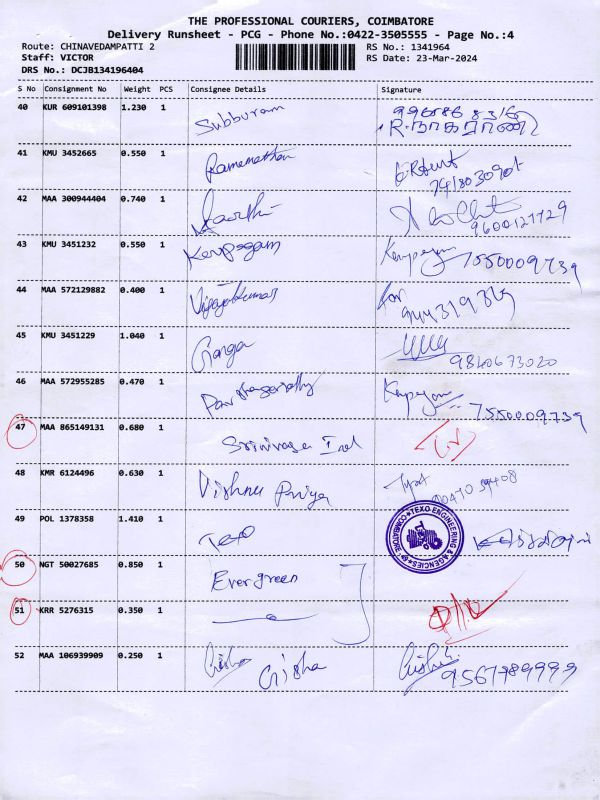 THE PROFESSIONAL COURIERS, COIMBATORE
Delivery Runsheet - PCG - Phone No.:0422-3505555 - Page No.:4
Route: CHINAVEDAMPATTI 2
RS No.: 1341964
Staff: VICTOR
RS Date: 23-Mar-2024
DRS No.: DCJB134196404
S No Consignment No Weight PCS Consignee Details Signature
40 KUR 609101398 1.230 1 Subburam
R. நாகராணி
41 KMU 3452665 0.550 1 Ramanathan
42 MAA 300944404 0.740 1 Aarthi
9600127729
43 KMU 3451232 0.550 1 Karpagam Karpagam 7550009739
44 MAA 572129882 0.400 1 Vijayakumar for
45 KMU 3451229 1.040 1 Ganga
9840673020
46 MAA 572955285 0.470 1 Parthasarathy Karpagam
7550009739
47 MAA 865149131 0.680 1 Srinivasa Ind
48 KMR 6124496 0.630 1 Vishnu Priya
49 POL 1378358 1.410 1 Texo
TEXO ENGINEERING & AGENCIES COIMBATORE
50 NGT 50027685 0.850 1 Evergreen
51 KRR 5276315 0.350 1
52 MAA 106939909 0.250 1 Girisha Girisha
9567789999